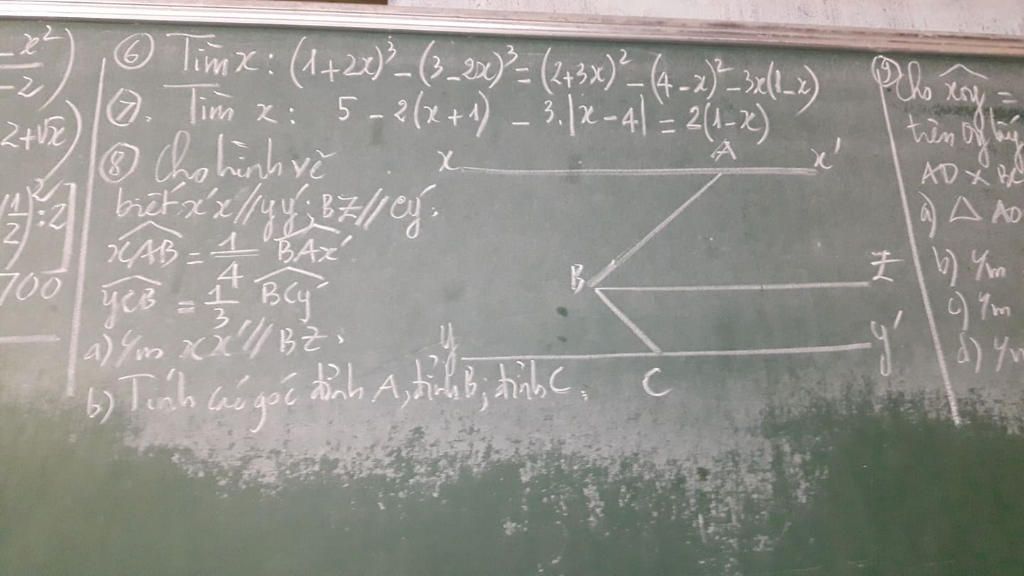 - x²
- 2)
2+√x)
(1/2)² : 2]
700
⑥ Tìm x : (1+2x)³ - (3-2x)³ = (2+3x)² - (4-x)² - 3x(1-x)
⑦. Tìm x : 5 - 2(x+1) - 3.|x-4| = 2(1-x)
⑧ Cho hình vẽ
biết x'x // yy'; BZ // Cy'.
xAB = 1/4 BAx'
yCB = 1/3 BCy'
a) C/m xx' // BZ.
b) Tính các góc đỉnh A; đỉnh B; đỉnh C.
x A x'
B Z
y C y'
Cho xOy =
trên Oy lấy
a) △ AO
b) C/m
c) C/m
d) C/m